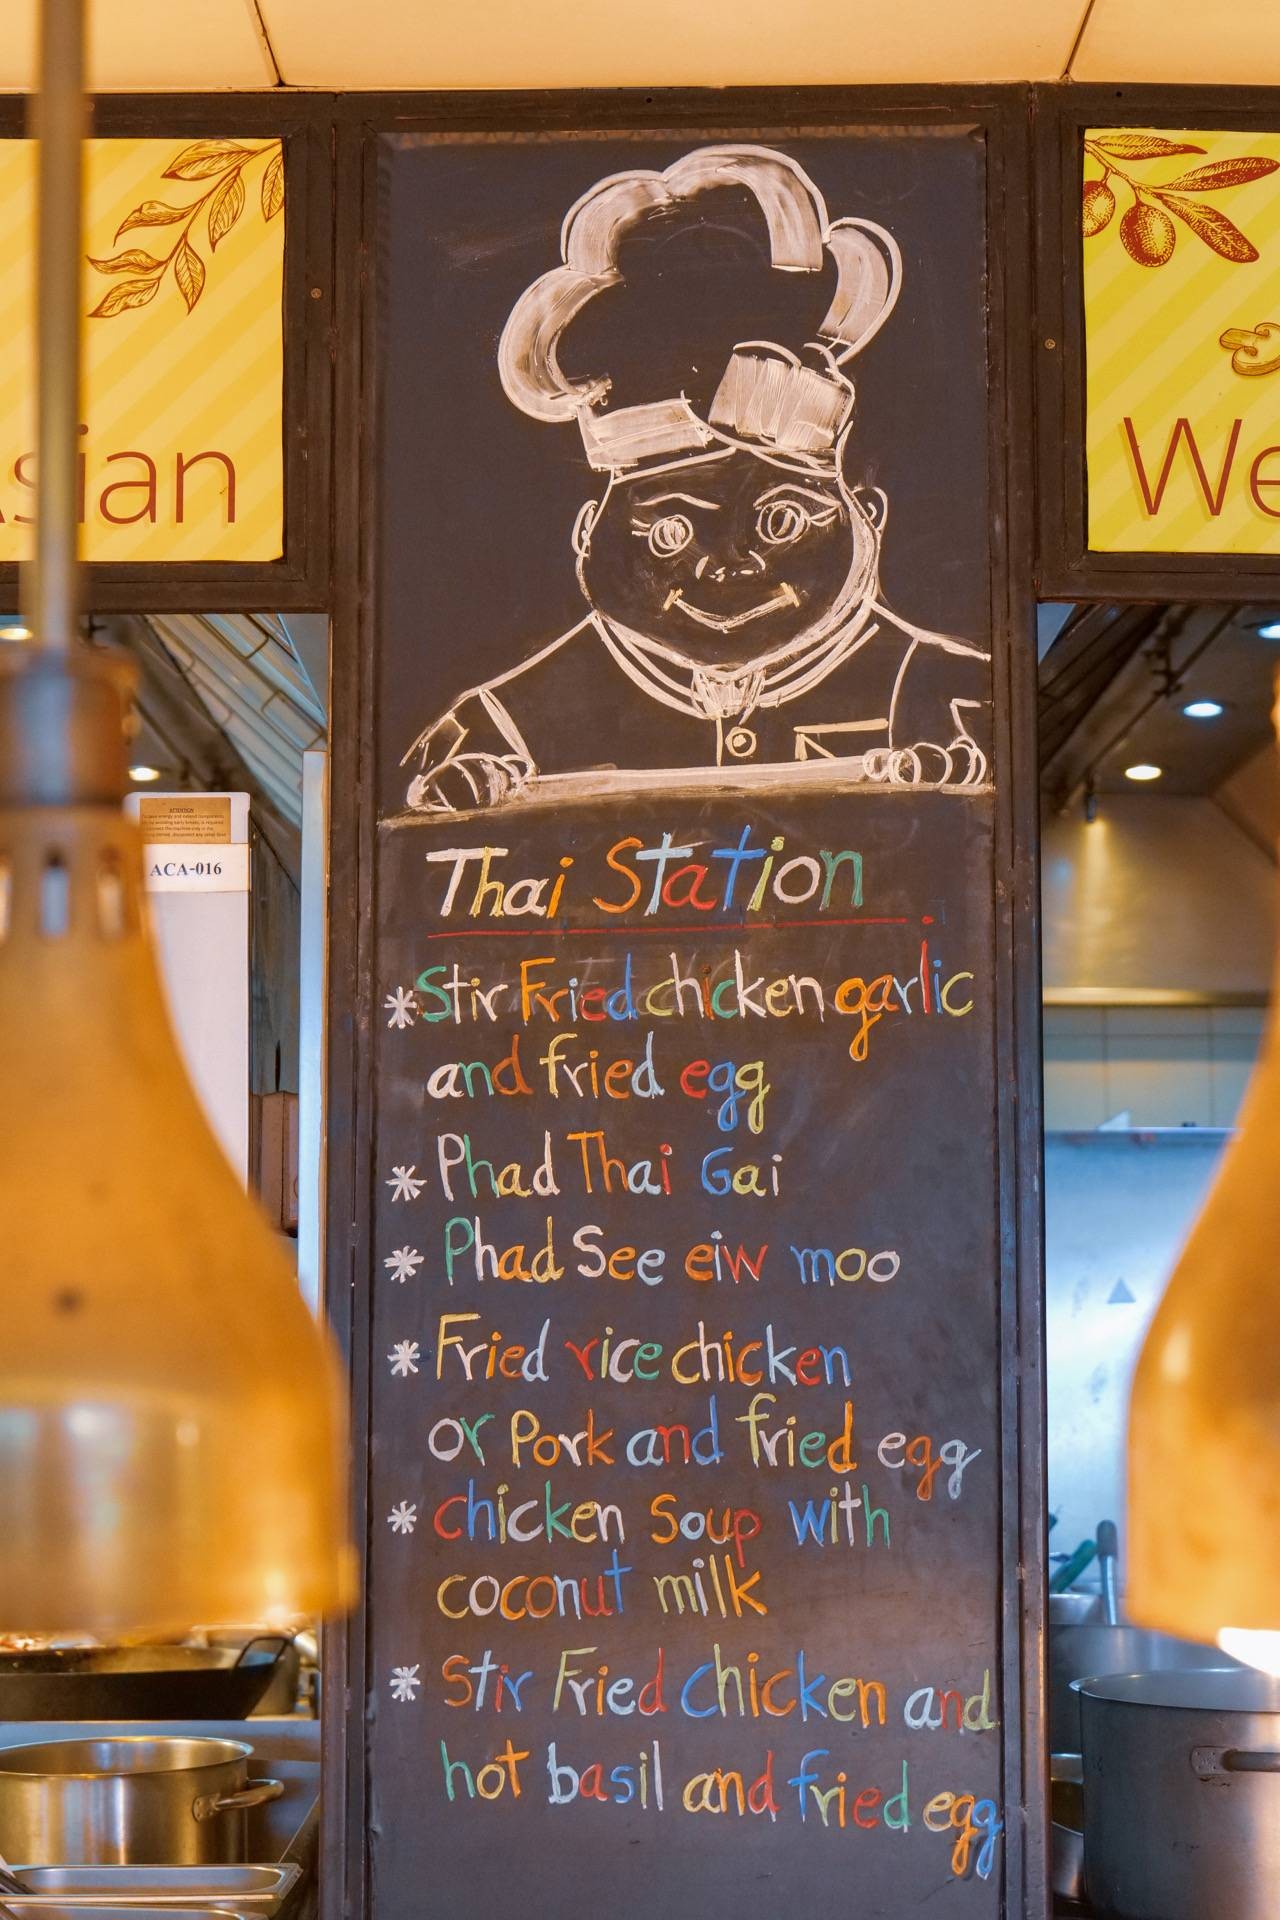 Asian
We
ATTENTION
ACA-016
Thai Station
*Stir Fried chicken garlic
and fried egg
* Phad Thai Gai
* Phad See eiw moo
* Fried rice chicken
or Pork and fried egg
* chicken Soup with
coconut milk
* Stir Fried chicken and
hot basil and fried egg